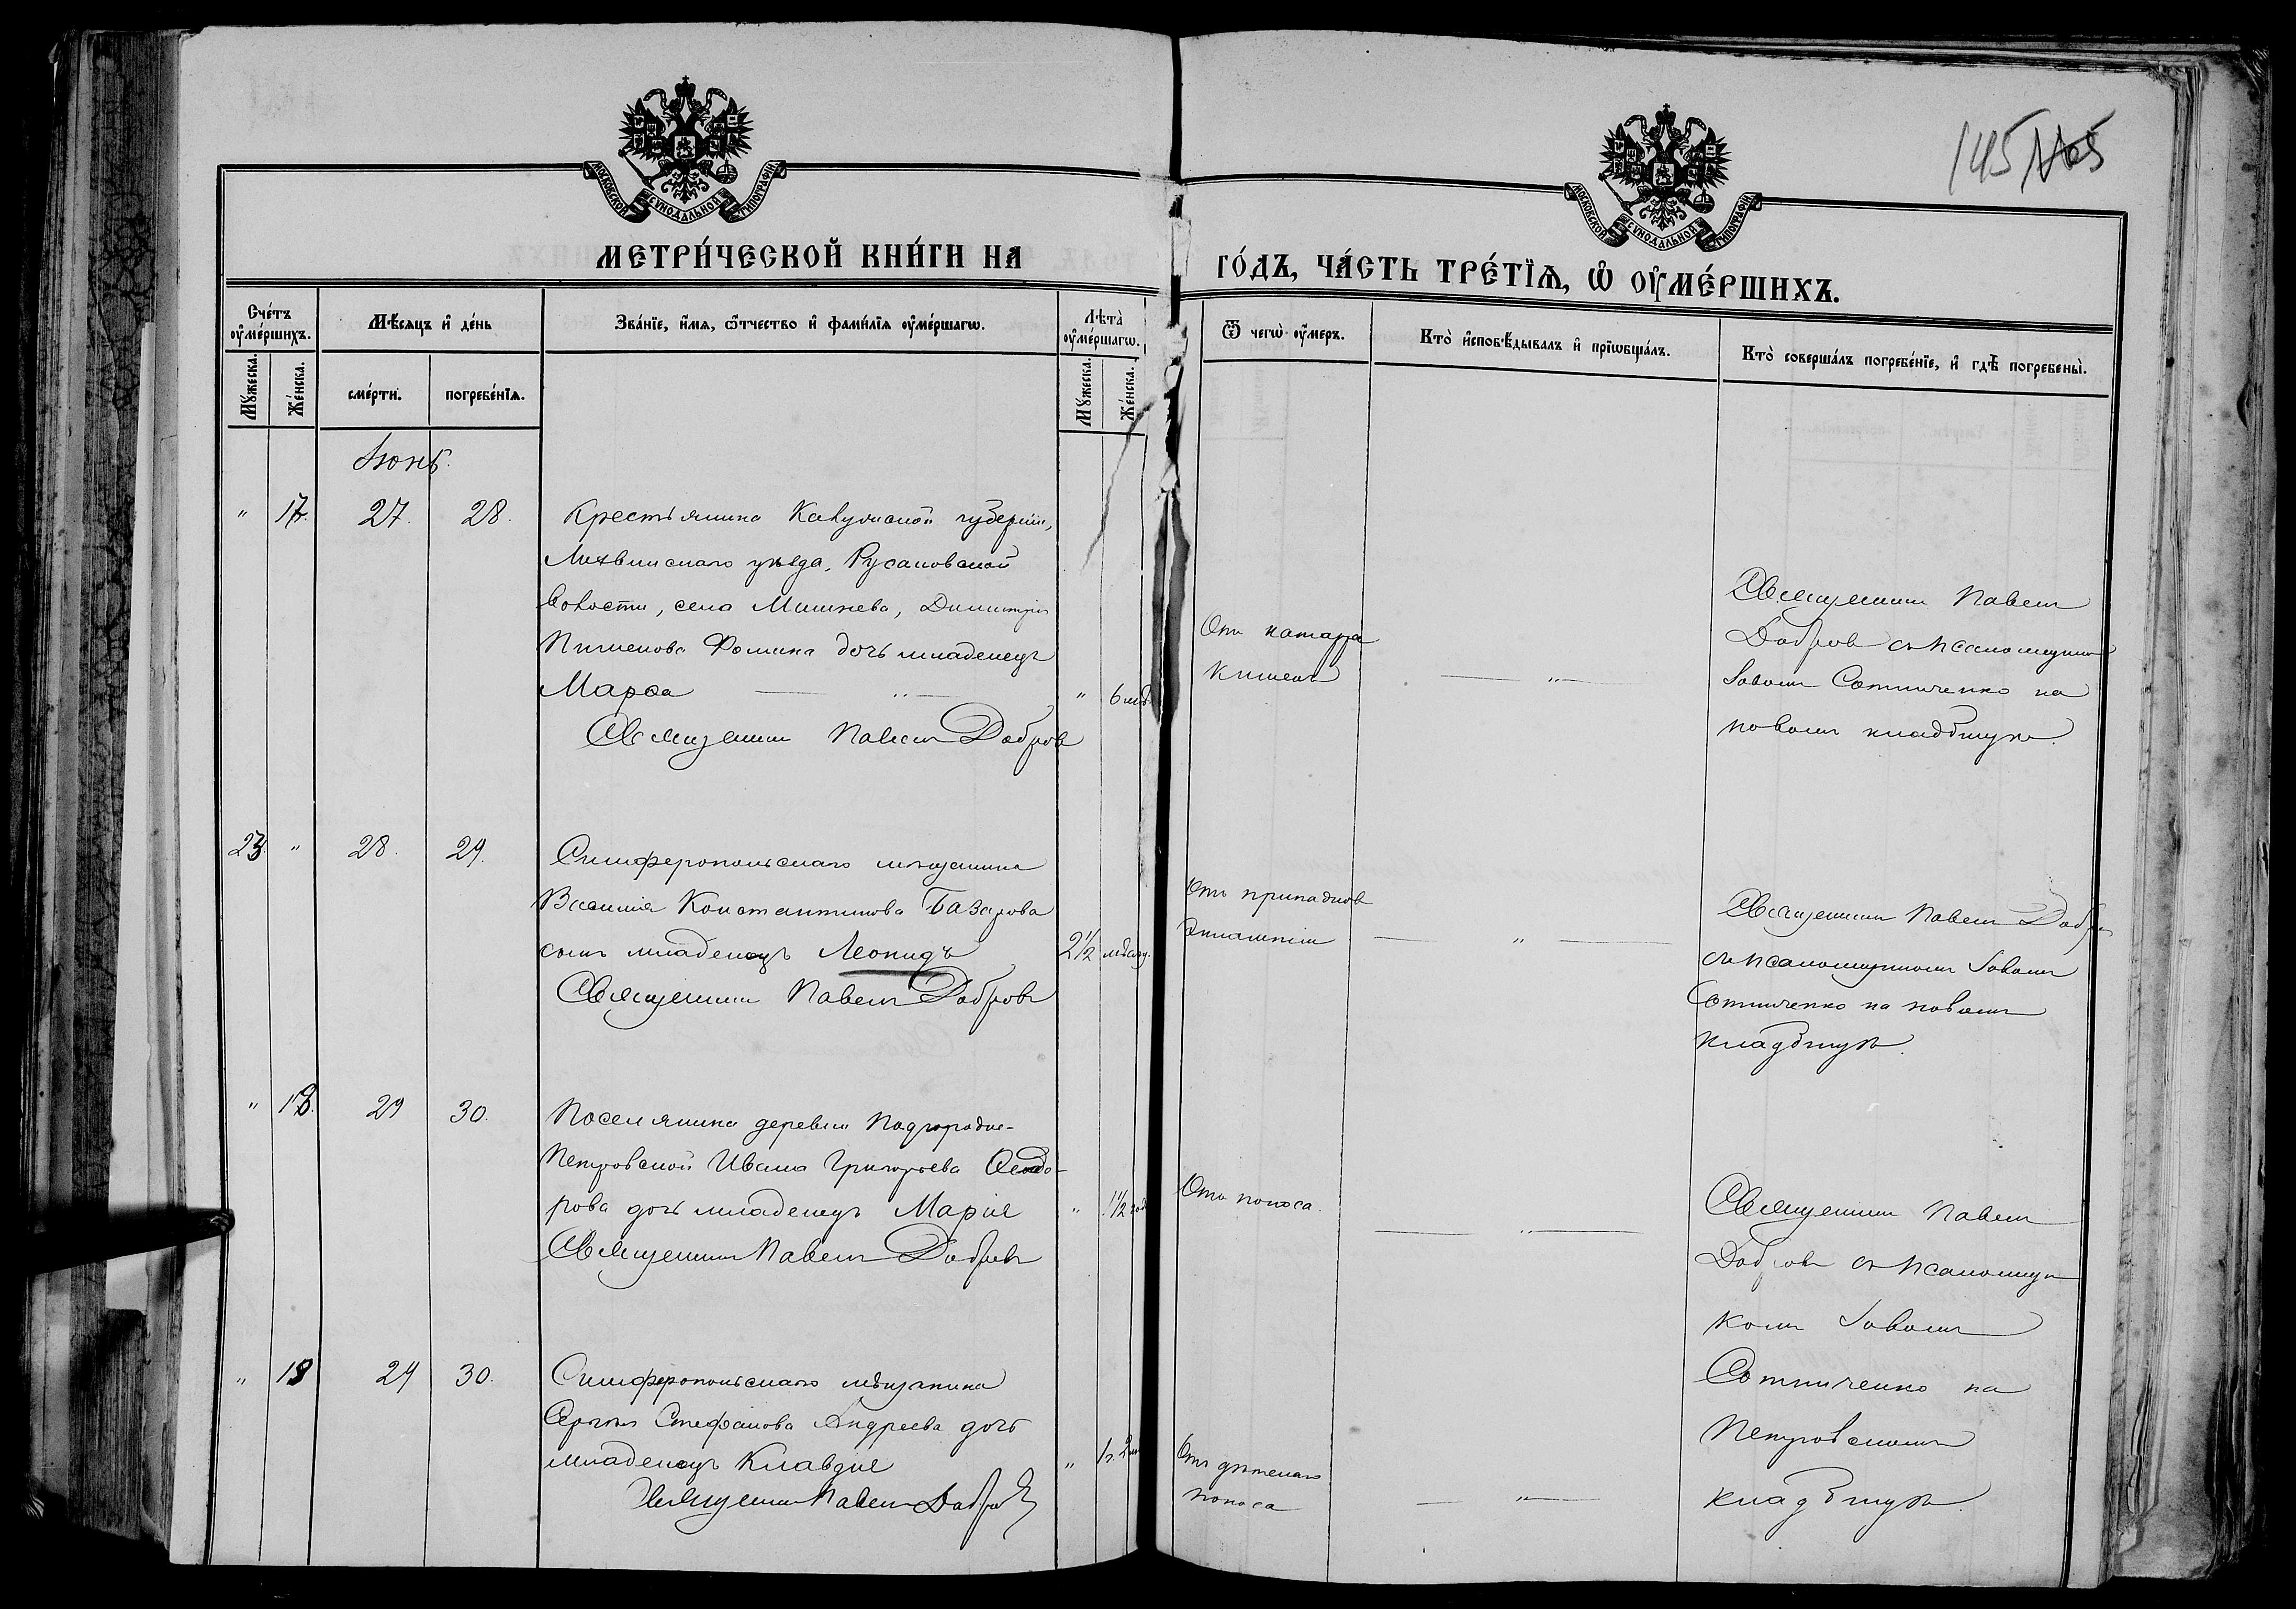 145
МОСКОВСКОЙ СУНОДАЛЬНОЙ ТИПОГРАФІИ
МОСКОВСКОЙ СУНОДАЛЬНОЙ ТИПОГРАФІИ
МЕТРИ́ЧЕСКОЙ КНИ́ГИ НА
ГО́ДЪ, ЧА́СТЬ ТРЕ́ТІѦ, Ѽ ОУМЕ́РШИХЪ.
Сче́тъ оумершихъ.
Мужеска.
Же́нска.
Мѣсяцъ и де́нь
сме́рти.
погребе́нїѧ.
Зва́нїе, имѧ, ѿтчество и фами́лїѧ оуме́ршагѡ.
Лѣта̀ оуме́ршагѡ.
Мужеска.
Же́нска.
Ѿ чегѡ̀ оумеръ.
Кто̀ исповѣдывалъ и прїѡбща́лъ.
Кто̀ соверша́лъ погребе́нїе, и гдѣ погребены̀.
Іюнь.
" 17. 27. 28.
Крестьянина Калужской губерніи,
Лихвинскаго уѣзда, Русановской
волости, села Мишнева, Димитрія
Пименова Фомина дочь младенецъ
Марѳа — " —
" 6 мѣс
Священникъ Павелъ Добровъ
Отъ катарра
кишекъ
— " —
Священникъ Павелъ
Добровъ съ псаломщикомъ
Іовомъ Сотниченко на
новомъ кладбищѣ.
23. " 28. 29.
Симферопольскаго мѣщанина
Василія Константинова Базарова
сынъ младенецъ Леонидъ
2 1/2 мѣсяц.
Священникъ Павелъ Добровъ
Отъ припадковъ
эклампсіи
— " —
Священникъ Павелъ Добровъ
съ псаломщикомъ Іовомъ
Сотниченко на новомъ
кладбищѣ.
" 18. 29 30.
Поселянина деревни Подгородне-
Петровской Ивана Григорьева Ѳеодо-
рова дочь младенецъ Марія
" 1 1/2 год
Священникъ Павелъ Добровъ
Отъ поноса.
— " —
Священникъ Павелъ
Добровъ съ псаломщи-
комъ Іовомъ
Сотниченко на
Петровскомъ
кладбищѣ.
" 19 29 30.
Симферопольскаго мѣщанина
Сергія Стефанова Андреева дочь
младенецъ Клавдія
" 1 г. 2 м
Священникъ Павелъ Добровъ
Отъ дѣтскаго
поноса
— " —